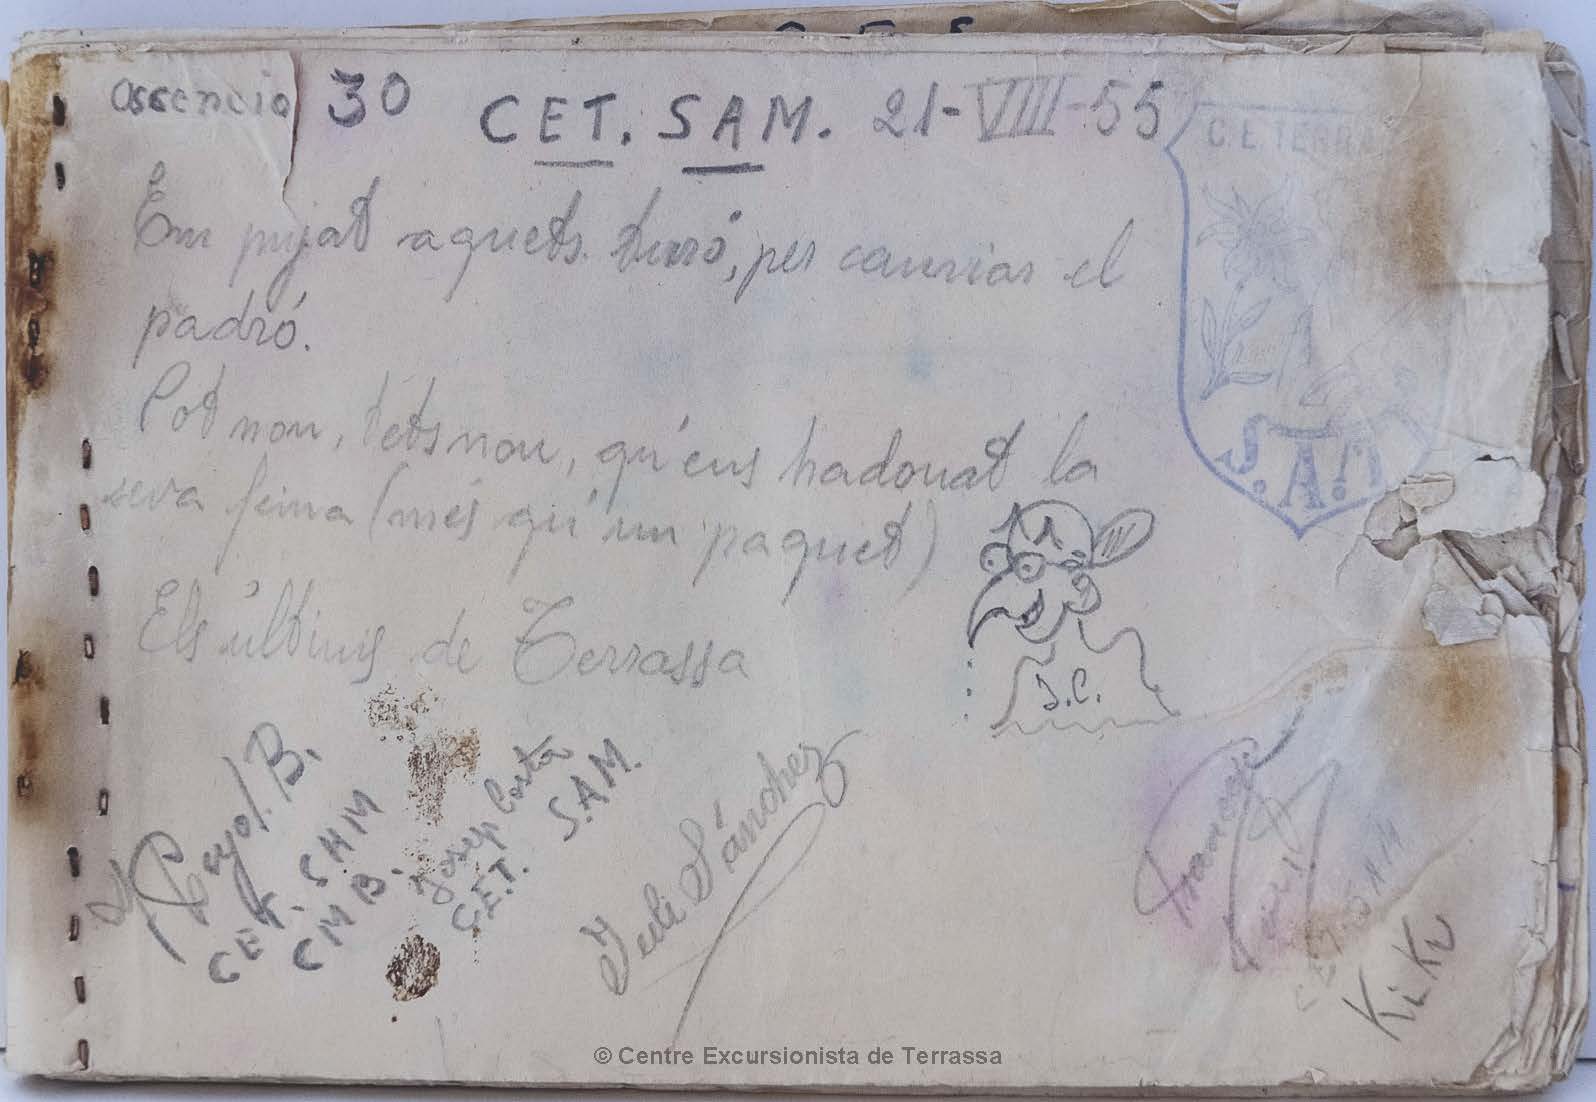 ascencio 30 CET. SAM. 21-VIII-55
C. E. TERRA
Em pujat aquets turó, per camviar el
padró.
Pot nou, tets nou, qu'ens hadonat la
seva feina (més qu'un paquet)
Els últims de Terrassa
S.A.M
J.C.
Puyol. B.
CET. SAM
CMB.
Josep Costa
C.E.T. S.AM.
Juli Sánchez
Francesc
CET. SAM
KiKu
© Centre Excursionista de Terrassa